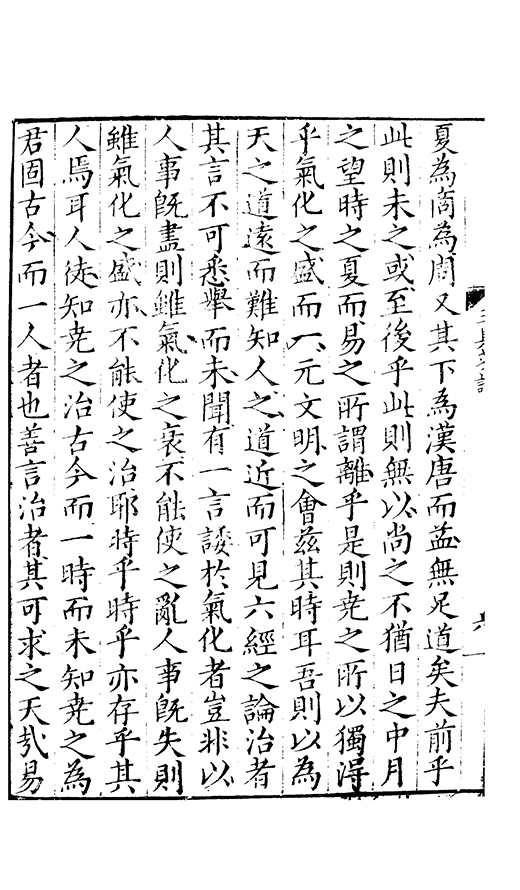 夏為商為周又其下為漢唐而益無足道矣夫前乎
此則未之或至後乎此則無以尚之不猶日之中月
之望時之夏而易之所謂離乎是則堯之所以獨得
乎氣化之盛而一元文明之會茲其時耳吾則以為
天之道遠而難知人之道近而可見六經之論治者
其言不可悉舉而未聞有一言諉於氣化者豈非以
人事既盡則雖氣化之衰不能使之亂人事既失則
雖氣化之盛亦不能使之治耶時乎時乎亦存乎其
人焉耳人徒知堯之治古今而一時而未知堯之為
君固古今而一人者也善言治者其可求之天哉易